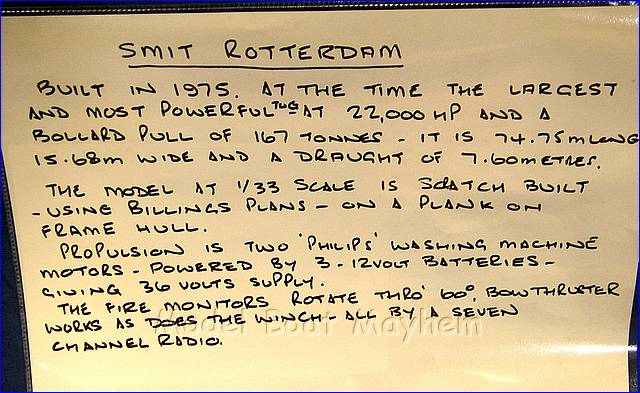 SMIT ROTTERDAM
BUILT IN 1975. AT THE TIME THE LARGEST
AND MOST POWERFUL TUG AT 22,000 HP AND A
BOLLARD PULL OF 167 TONNES - IT IS 74.75m LONG
15.68m WIDE AND A DRAUGHT OF 7.60 METRES.
THE MODEL AT 1/33 SCALE IS SCRATCH BUILT
- USING BILLINGS PLANS - ON A PLANK ON
FRAME HULL.
PROPULSION IS TWO 'PHILIPS' WASHING MACHINE
MOTORS - POWERED BY 3 - 12VOLT BATTERIES -
GIVING 36 VOLTS SUPPLY.
THE FIRE MONITORS ROTATE THRO' 60°, BOWTHRUSTER
WORKS AS DOES THE WINCH - ALL BY A SEVEN
CHANNEL RADIO.
Model Boat Mayhem